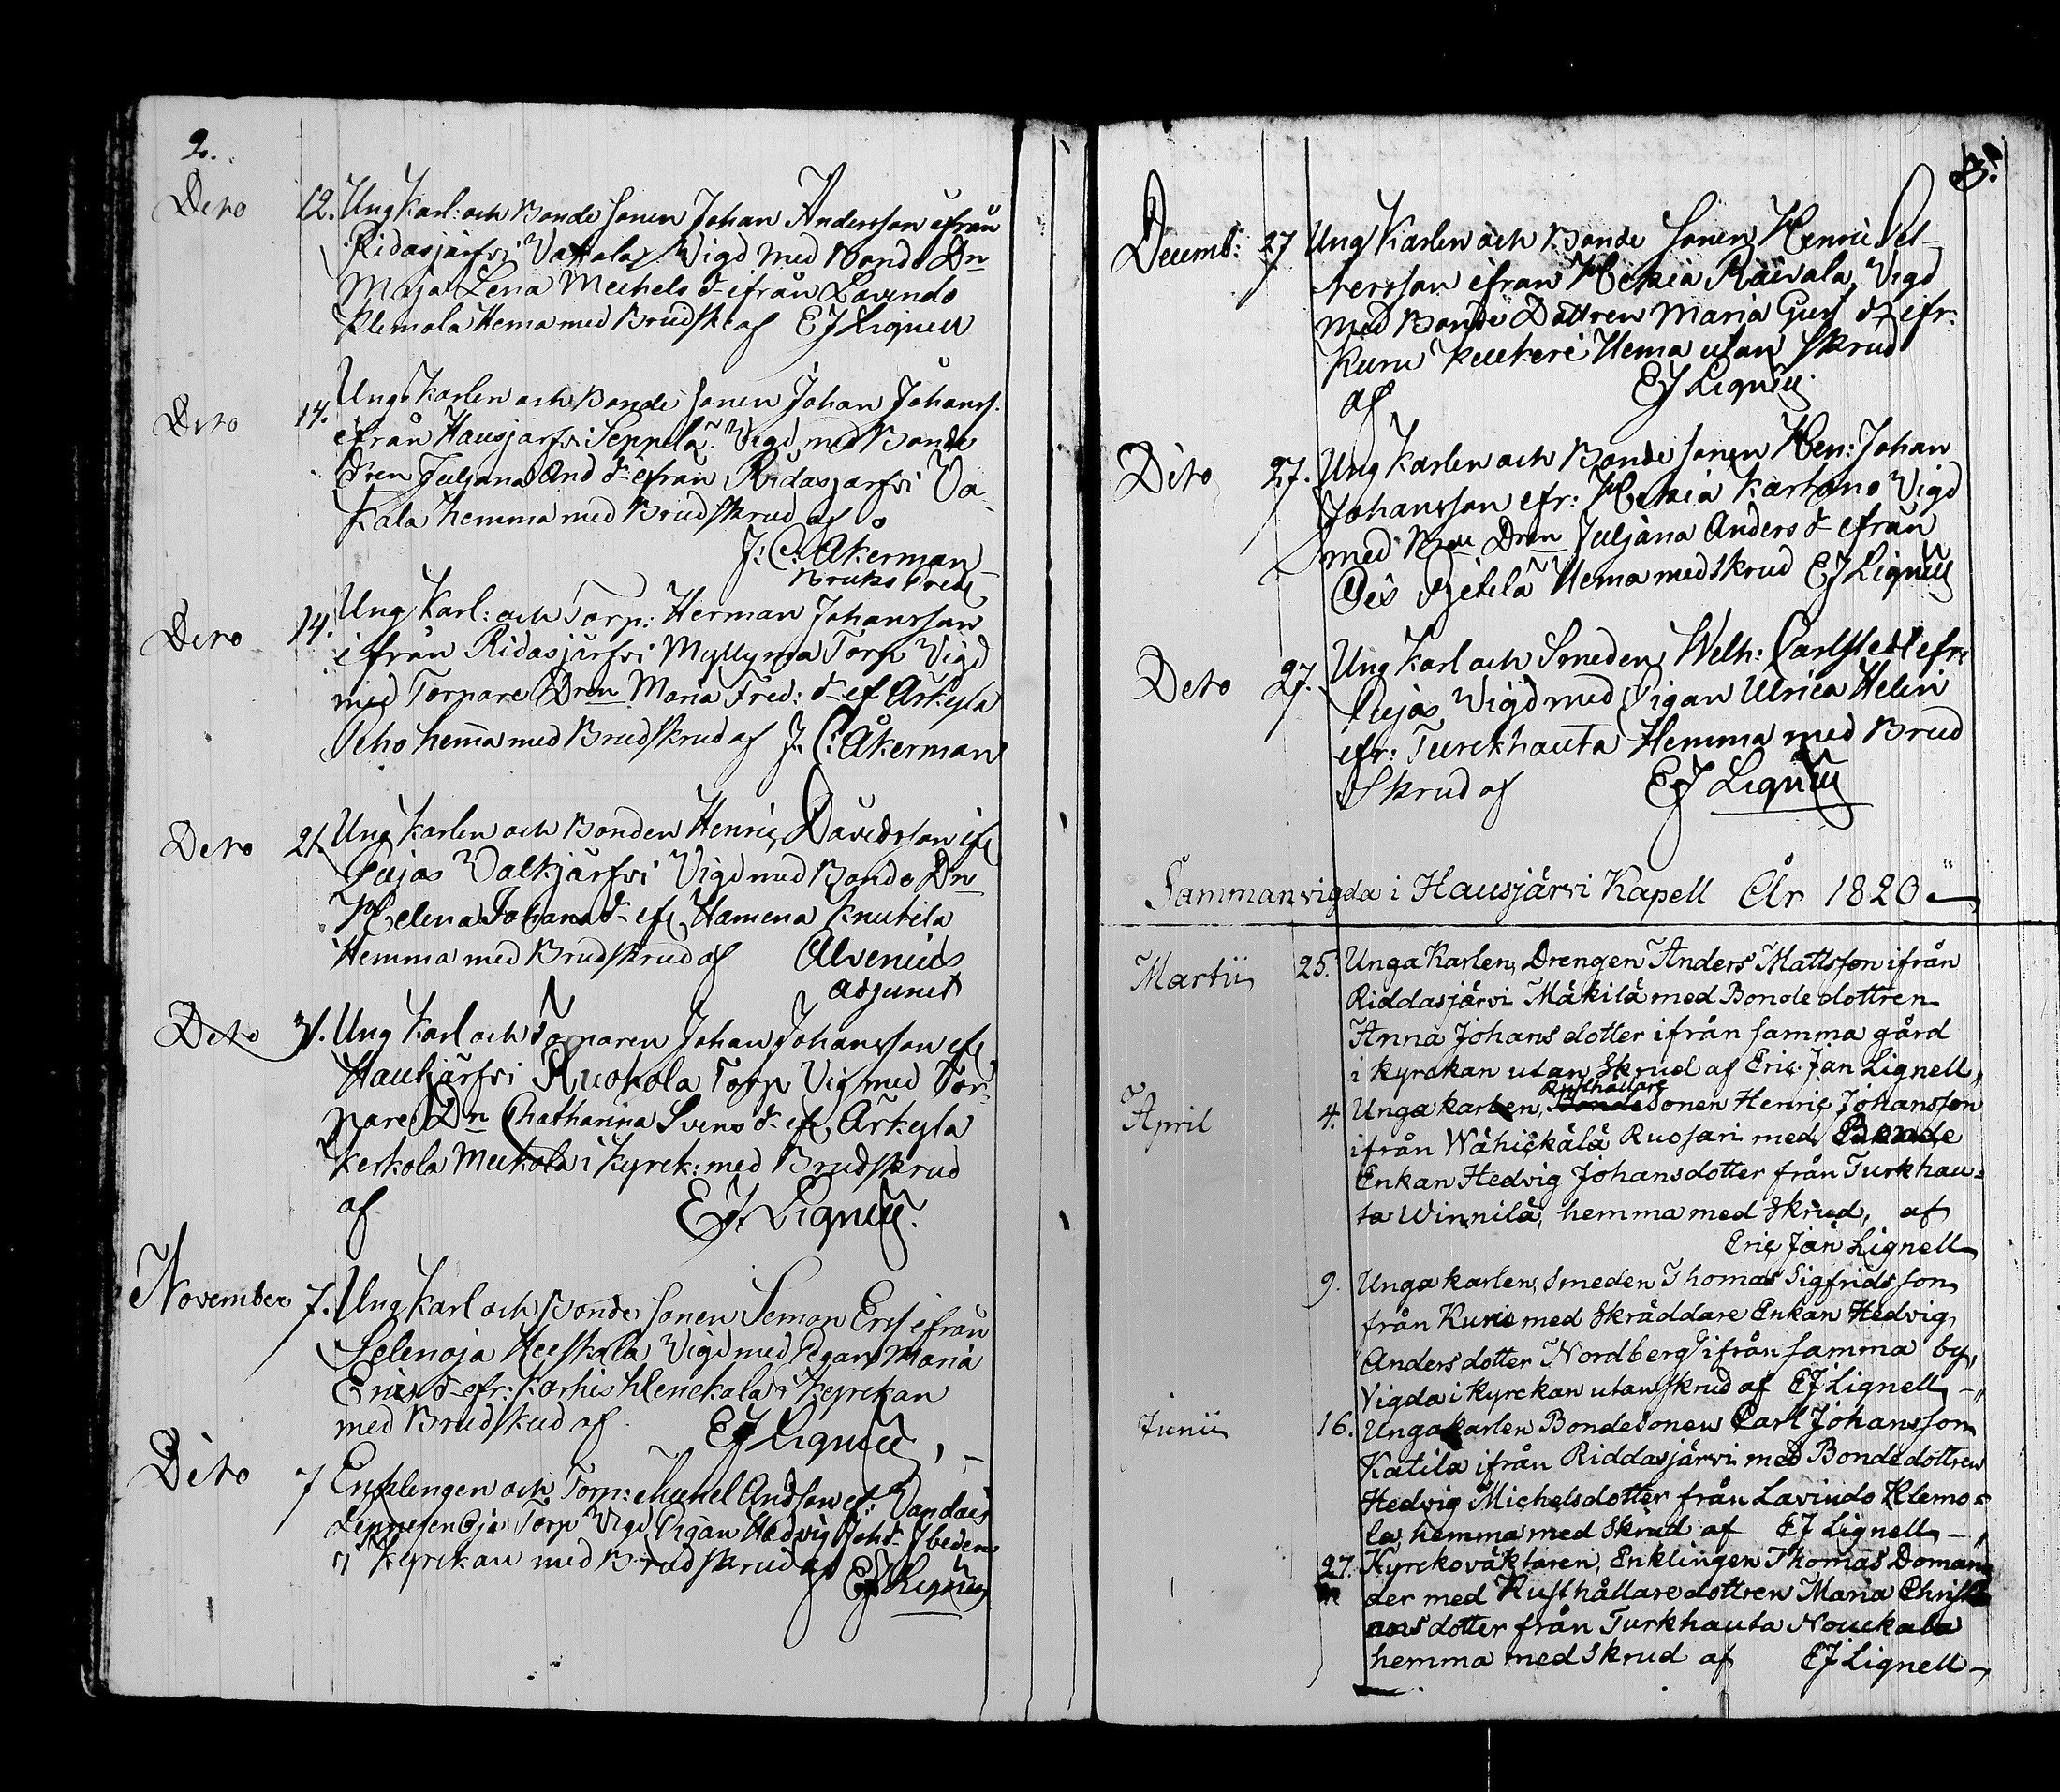 2.
Dito 12. Ung Karl: och Bonde Sonen Johan Andersson ifrån
Ridasjärfvi Vatkala Vigd med Bonde Dn
Maja Lena Michels dr ifrån Lavindo
Klemola Hema med Brudskr af EJ Lignell
Dito 14. Ung Karlen och Bonde Sonen Johan Johanss.
ifrån Hausjärfvi Seppelä. Vigd med Bonde
dren Juljana And dr ifrån Ridasjärfvi Va-
kala hemma med Brudskrud af
J: C: Åkerman
Bruks Pred
Dito 14. Ung Karl: och Torp: Herman Johansson
ifrån Ridasjärfvi Myllyma Torp Vigd
med Torpare Dren Maria Fred: dr ef Arkyla
hema med Brudskrud af J. C: Åkerman
Dito 21. Ung Karlen och Bonden Henric Davidsson if
Pujas Valkjärfvi Vigd med Bonde Dn
Helena Johans dr if Hamena Knutila
Hemma med Brudskrud af Alvenius
adjunct
Dito 31. Ung Karl och Torparen Johan Johansson if
Hausjärfvi Ruokola Torp Vig med Tor-
pare Dn Chatharina Svens dr if Arkyla
Kerkola Meckola i Kyrck: med Brudskrud
af EJ. Lignell.
November 7. Ung Karl och Bonde Sonen Semon Ers ifrån
Selenoja Heeskala Vigd med Pigan Maria
Erics dr efr: Karhis Hienekala i Kyrckan
med Brudskud af EJ Lignell
Dito 7 Enklingen och Torp: Michel Andson ef: Vandais
Leppesenoja Torp Vigd Pigan Hedvig Joh dr
i Kyrckan med Brudskrud af EJ Lignell
3.
Decemb: 27 Ung Karlen och Bonde Sonen Henric Pet-
tersson ifran Hekia Räivala, Vigd
med Bonde Dottren Maria Gust dr ifr:
Kuru Keekeri Hema utan Skrud
af EJ Lignell
Dito 27. Ung Karlen och Bonde Sonen Hen: Johan
Johansson efr: Hekia Karhano Vigd
med Dren Juljana Anders dr efrån
Ois Pietilä Hema med skrud EJ Lignell
Dito 27. Ung Karl och Smeden Welh: Carlstedt efr:
Pujas Vigd med Pigan Ulrica Helin
ifr: Turckhauta Hemma med Brud
Skrud af EJ Lignell
Sammanvigda i Hausjärvi Kapell År 1820
Martii 25. Unga Karlen, Drengen Anders Mattsson ifrån
Riddasjärvi Mäkilä med Bonde dottren
Anna Johans dotter ifrån samma gård
i kyrckan utan Skrud af Eric Jan Lignell
Rusthållare
April 4. Unga karlen, Bonde sonen Henric Johansson
ifrån Wähickälä Ruosari med Bonde
Enkan Hedvig Johansdotter från Turkhau-
ta Winnilä, hemma med Skrud, af
Eric Jan Lignell
9. Unga karlen, Smeden Thomas Sigfridsson
från Kuris med Skräddare Enkan Hedvig
Anders dotter Nordberg ifrån samma by,
Vigda i kyrckan utan skrud af EJ Lignell
Junii 16. Unga karlen Bondesonen Carl Johansson
Katila ifrån Riddasjärvi med Bondedottren
Hedvig Michelsdotter från Lavindo Klemo-
la, hemma med Skrud af EJ Lignell
27. Kyrckováktaren, Enklingen Thomas Doman
der med Rusthållaredottren Maria Christi
ans dotter från Turkhauta Nouckala
hemma med Skrud af EJ Lignell